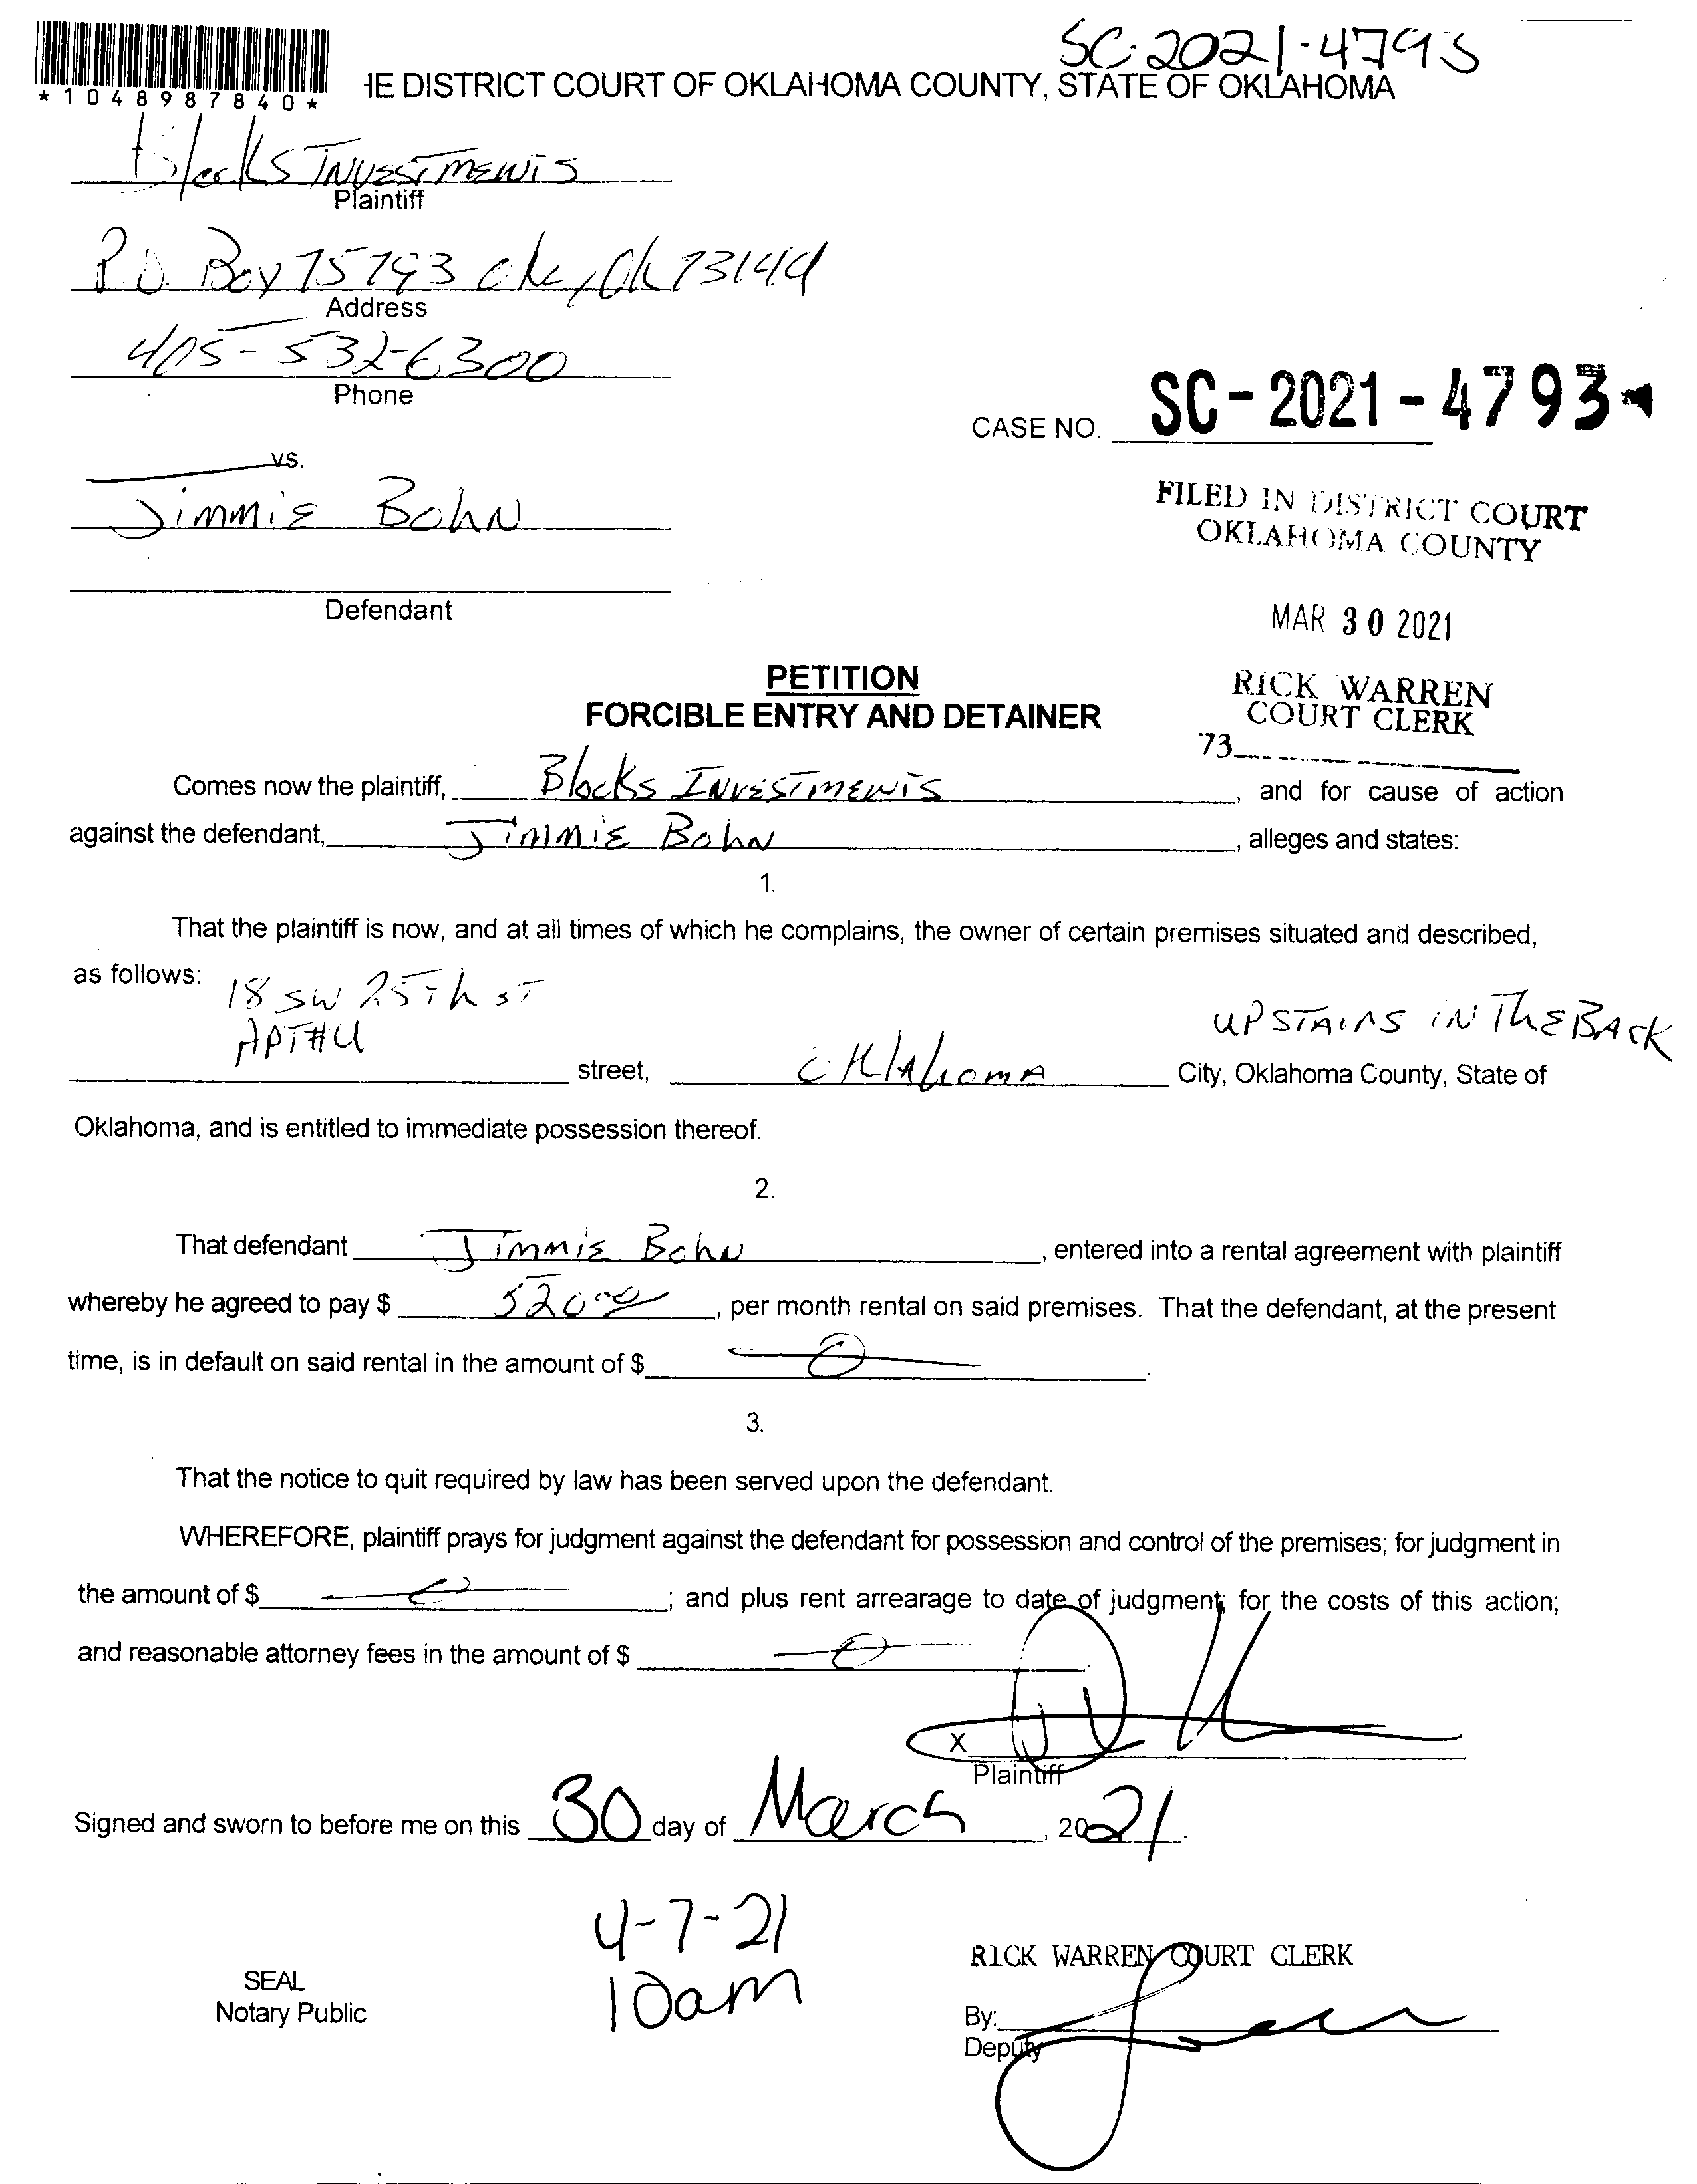 SC-2021-4793
*1048987840*
IE DISTRICT COURT OF OKLAHOMA COUNTY, STATE OF OKLAHOMA
Blocks INVESTMENTS
Plaintiff
P.O. Box 75793 okc, Ok 73144
Address
405-532-6300
Phone
CASE NO. SC-2021-4793
vs.
Jimmie Bohn
FILED IN DISTRICT COURT
OKLAHOMA COUNTY
Defendant
MAR 30 2021
PETITION
FORCIBLE ENTRY AND DETAINER
RICK WARREN
COURT CLERK
73
Comes now the plaintiff, Blocks INVESTMENTS, and for cause of action
against the defendant, Jimmie Bohn, alleges and states:
1.
That the plaintiff is now, and at all times of which he complains, the owner of certain premises situated and described,
as follows: 18 SW 25th ST
APT#U UPSTAIRS IN ThE BACK
street, OKlahomA City, Oklahoma County, State of
Oklahoma, and is entitled to immediate possession thereof.
2.
That defendant Jimmie Bohn, entered into a rental agreement with plaintiff
whereby he agreed to pay $ 520.00, per month rental on said premises. That the defendant, at the present
time, is in default on said rental in the amount of $ 0.
3.
That the notice to quit required by law has been served upon the defendant.
WHEREFORE, plaintiff prays for judgment against the defendant for possession and control of the premises; for judgment in
the amount of $ 0; and plus rent arrearage to date of judgment; for the costs of this action;
and reasonable attorney fees in the amount of $ 0.
X
Plaintiff
Signed and sworn to before me on this 30 day of March, 2021.
4-7-21
10am
RICK WARREN COURT CLERK
SEAL
Notary Public
By:
Deputy